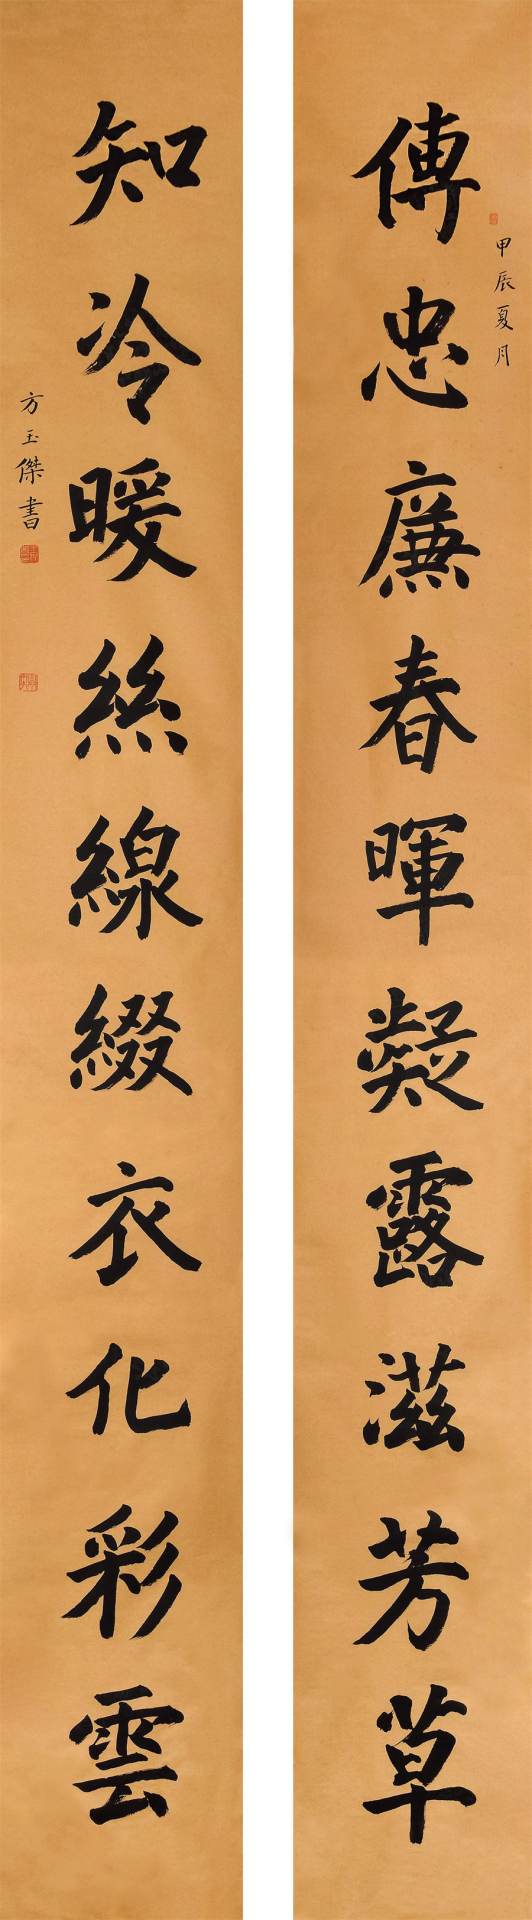 甲辰夏月
傳忠廉春暉凝露滋芳草
知冷暖絲線綴衣化彩雲
方玉傑書